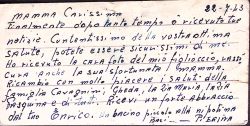 22-7-43
MAMMA CARISSIMA
Finalmente dopo tanto tempo ò ricevuto tue
notizie. Contentissimo della vostra ottima
salute, potete essere sicurissimi di me.
Ho ricevuto la cara foto del mio figlioccio,
cura anche la sua fortunata mamma.
Ricambio con molto piacere i saluti della
famiglia Cavagnini, Gheda, la Zia Maria
e di tutti. Ricevi un forte abbraccio
dal tuo Enrico. Un bacino piccolo alla mamma
Pierina